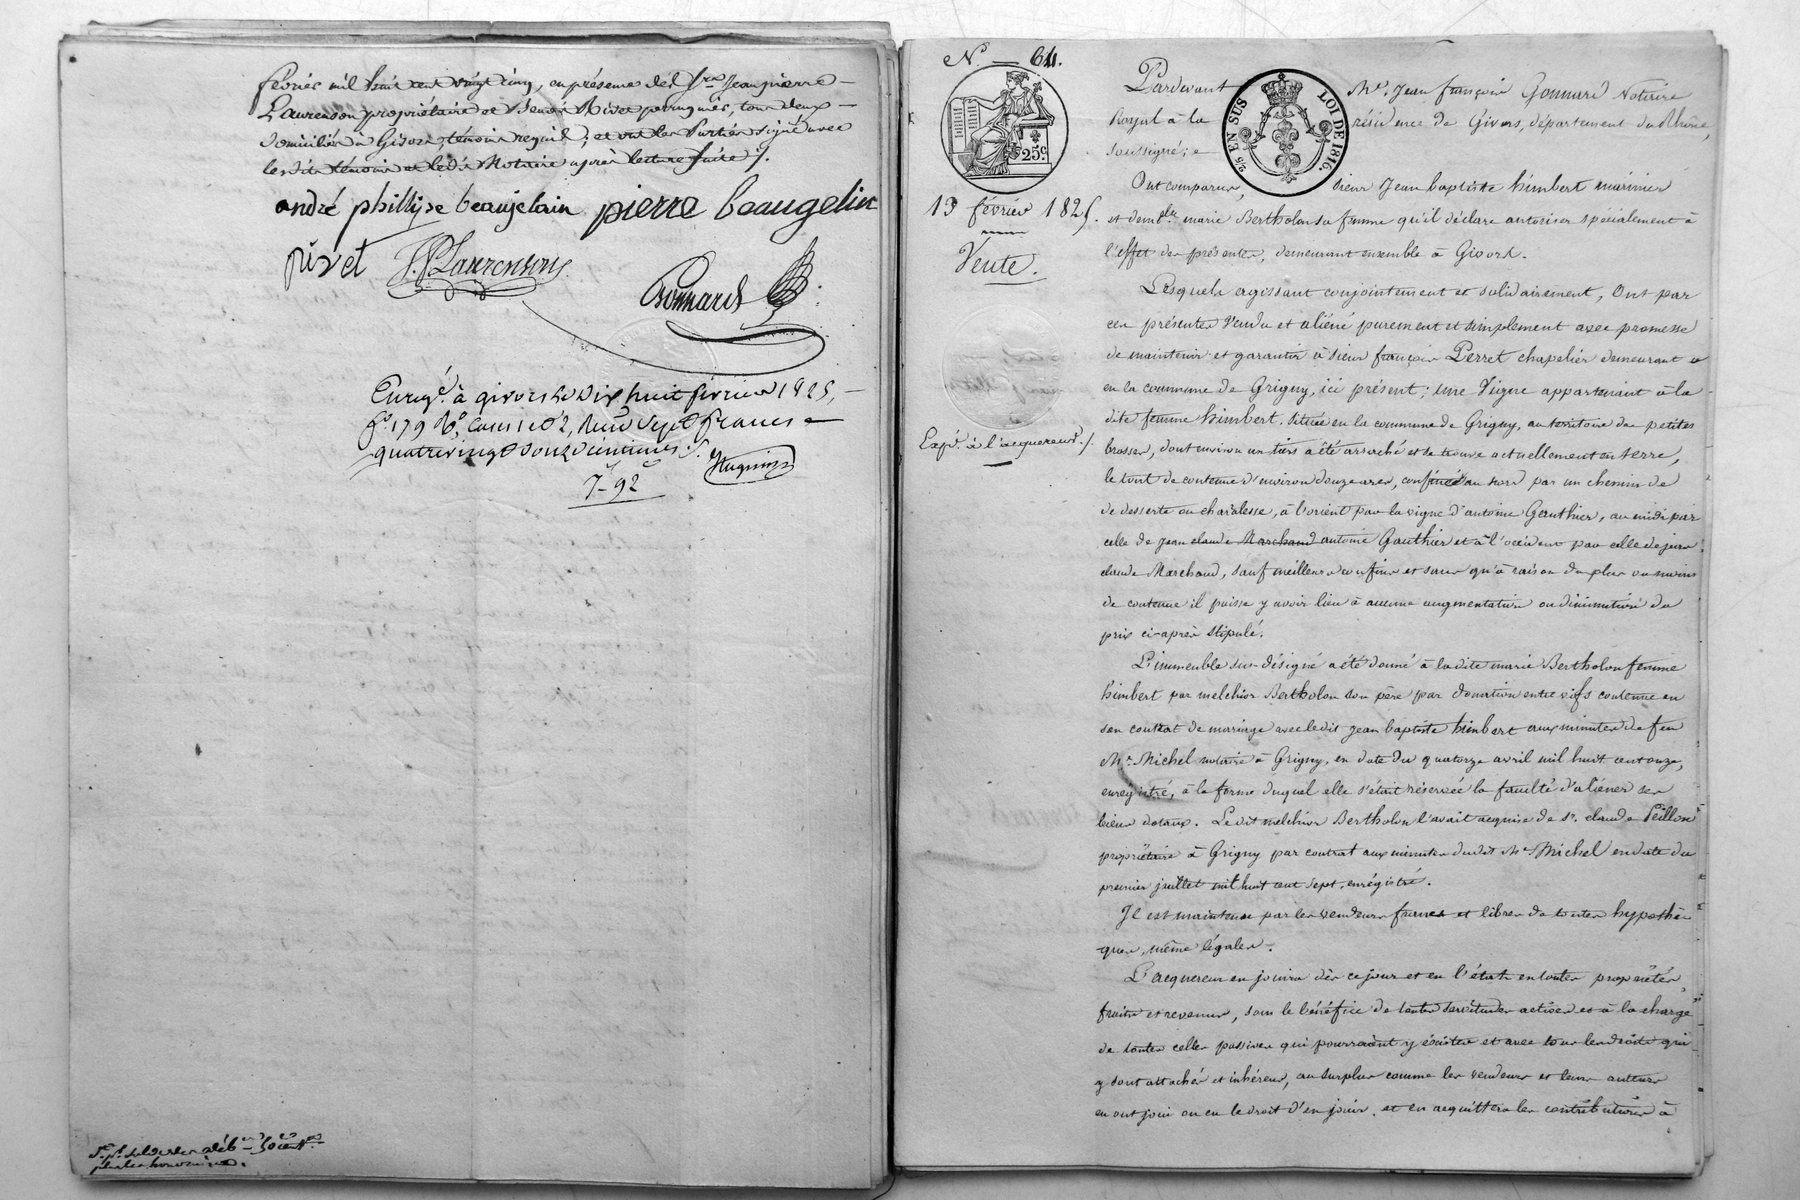 février mil huit cent vingt cinq, en présence des Srs Jean pierre
Laurenson propriétaire et Benoit Rivet perruquier, tous deux
domiciliés à Givors, témoins requis; et ont les Parties signé avec
lesdits témoins et ledit Notaire après lecture faite /.
andré phillipe beaujelain pierre beaugelin
rivet J. P. Laurenson
Gonnard
Enregé. à givors le dix huit février 1825,
fo. 179 Vo. Cases 1 et 2, Reçu Sept francs
quatrevingt douze centimes /.
Huguin
7-92
No — 64.
25c
25 EN SUS LOI DE 1816.
13 février 1825.
Vente.
Expé. à l'acquereur /.
Pardevant Me. Jean françois Gonnard Notaire
Royal à la résidence de Givors, département du Rhône,
soussigné;
Ont comparu, sieur Jean baptiste himbert marinier
et demelle marie Bertholon sa femme qu'il déclare autoriser spécialement à
l'effet des présentes, demeurant ensemble à Givors.
Lesquels agissant conjointement et solidairement, Ont par
ces présentes Vendu et aliéné purement et simplement avec promesse
de maintenir et garantir à sieur françois Perret chapelier demeurant
en la commune de Grigny, ici présent; Une Vigne appartenant à la
dite femme himbert, située en la commune de Grigny, au territoire des petites
brosses, dont environ un tiers a été arraché et se trouve actuellement en terre,
le tout de contenue d'environ douze ares, confinée au nord par un chemin de
de desserte ou charalesse, à l'orient par la vigne d'antoine Gauthier, au midi par
celle de Jean claude Marchand antoine Gauthier et à l'occident par celle de jean
claude Marchand, sauf meilleurs confins et sans qu'à raison du plus ou moins
de contenue il puisse y avoir lieu à aucune augmentation ou diminution du
prix ci-après stipulé.
L'immeuble sus-désigné a été donné à la dite marie Bertholon femme
himbert par melchior Bertholon son père par donation entre vifs contenue en
son contrat de mariage avec le dit Jean baptiste himbert aux minutes de feu
Me. Michel notaire à Grigny, en date du quatorze avril mil huit cent onze,
enregistré, à la forme duquel elle s'était réservée la faculté d'aliéner ses
biens dotaux. Le dit melchior Bertholon l'avait acquise de Sr. claude Peillon
propriétaire à Grigny par contrat aux minutes dudit Me Michel en date du
premier juillet mil huit cent sept, enrégistré.
Il est maintenu par les vendeurs francs et libres de toutes hypothè-
ques, même légales.
L'acquereur en jouira dès ce jour et en l'état en toutes propriétés,
fruits et revenus, sous le bénéfice de toutes servitudes actives et à la charge
de toutes celles passives qui pourraient y éxister et avec tous les droits qui
y sont attachés et inhérens, au surplus comme les vendeurs et leurs auteurs
en ont joui ou eu le droit d'en jouir, et en acquittera les contributions à